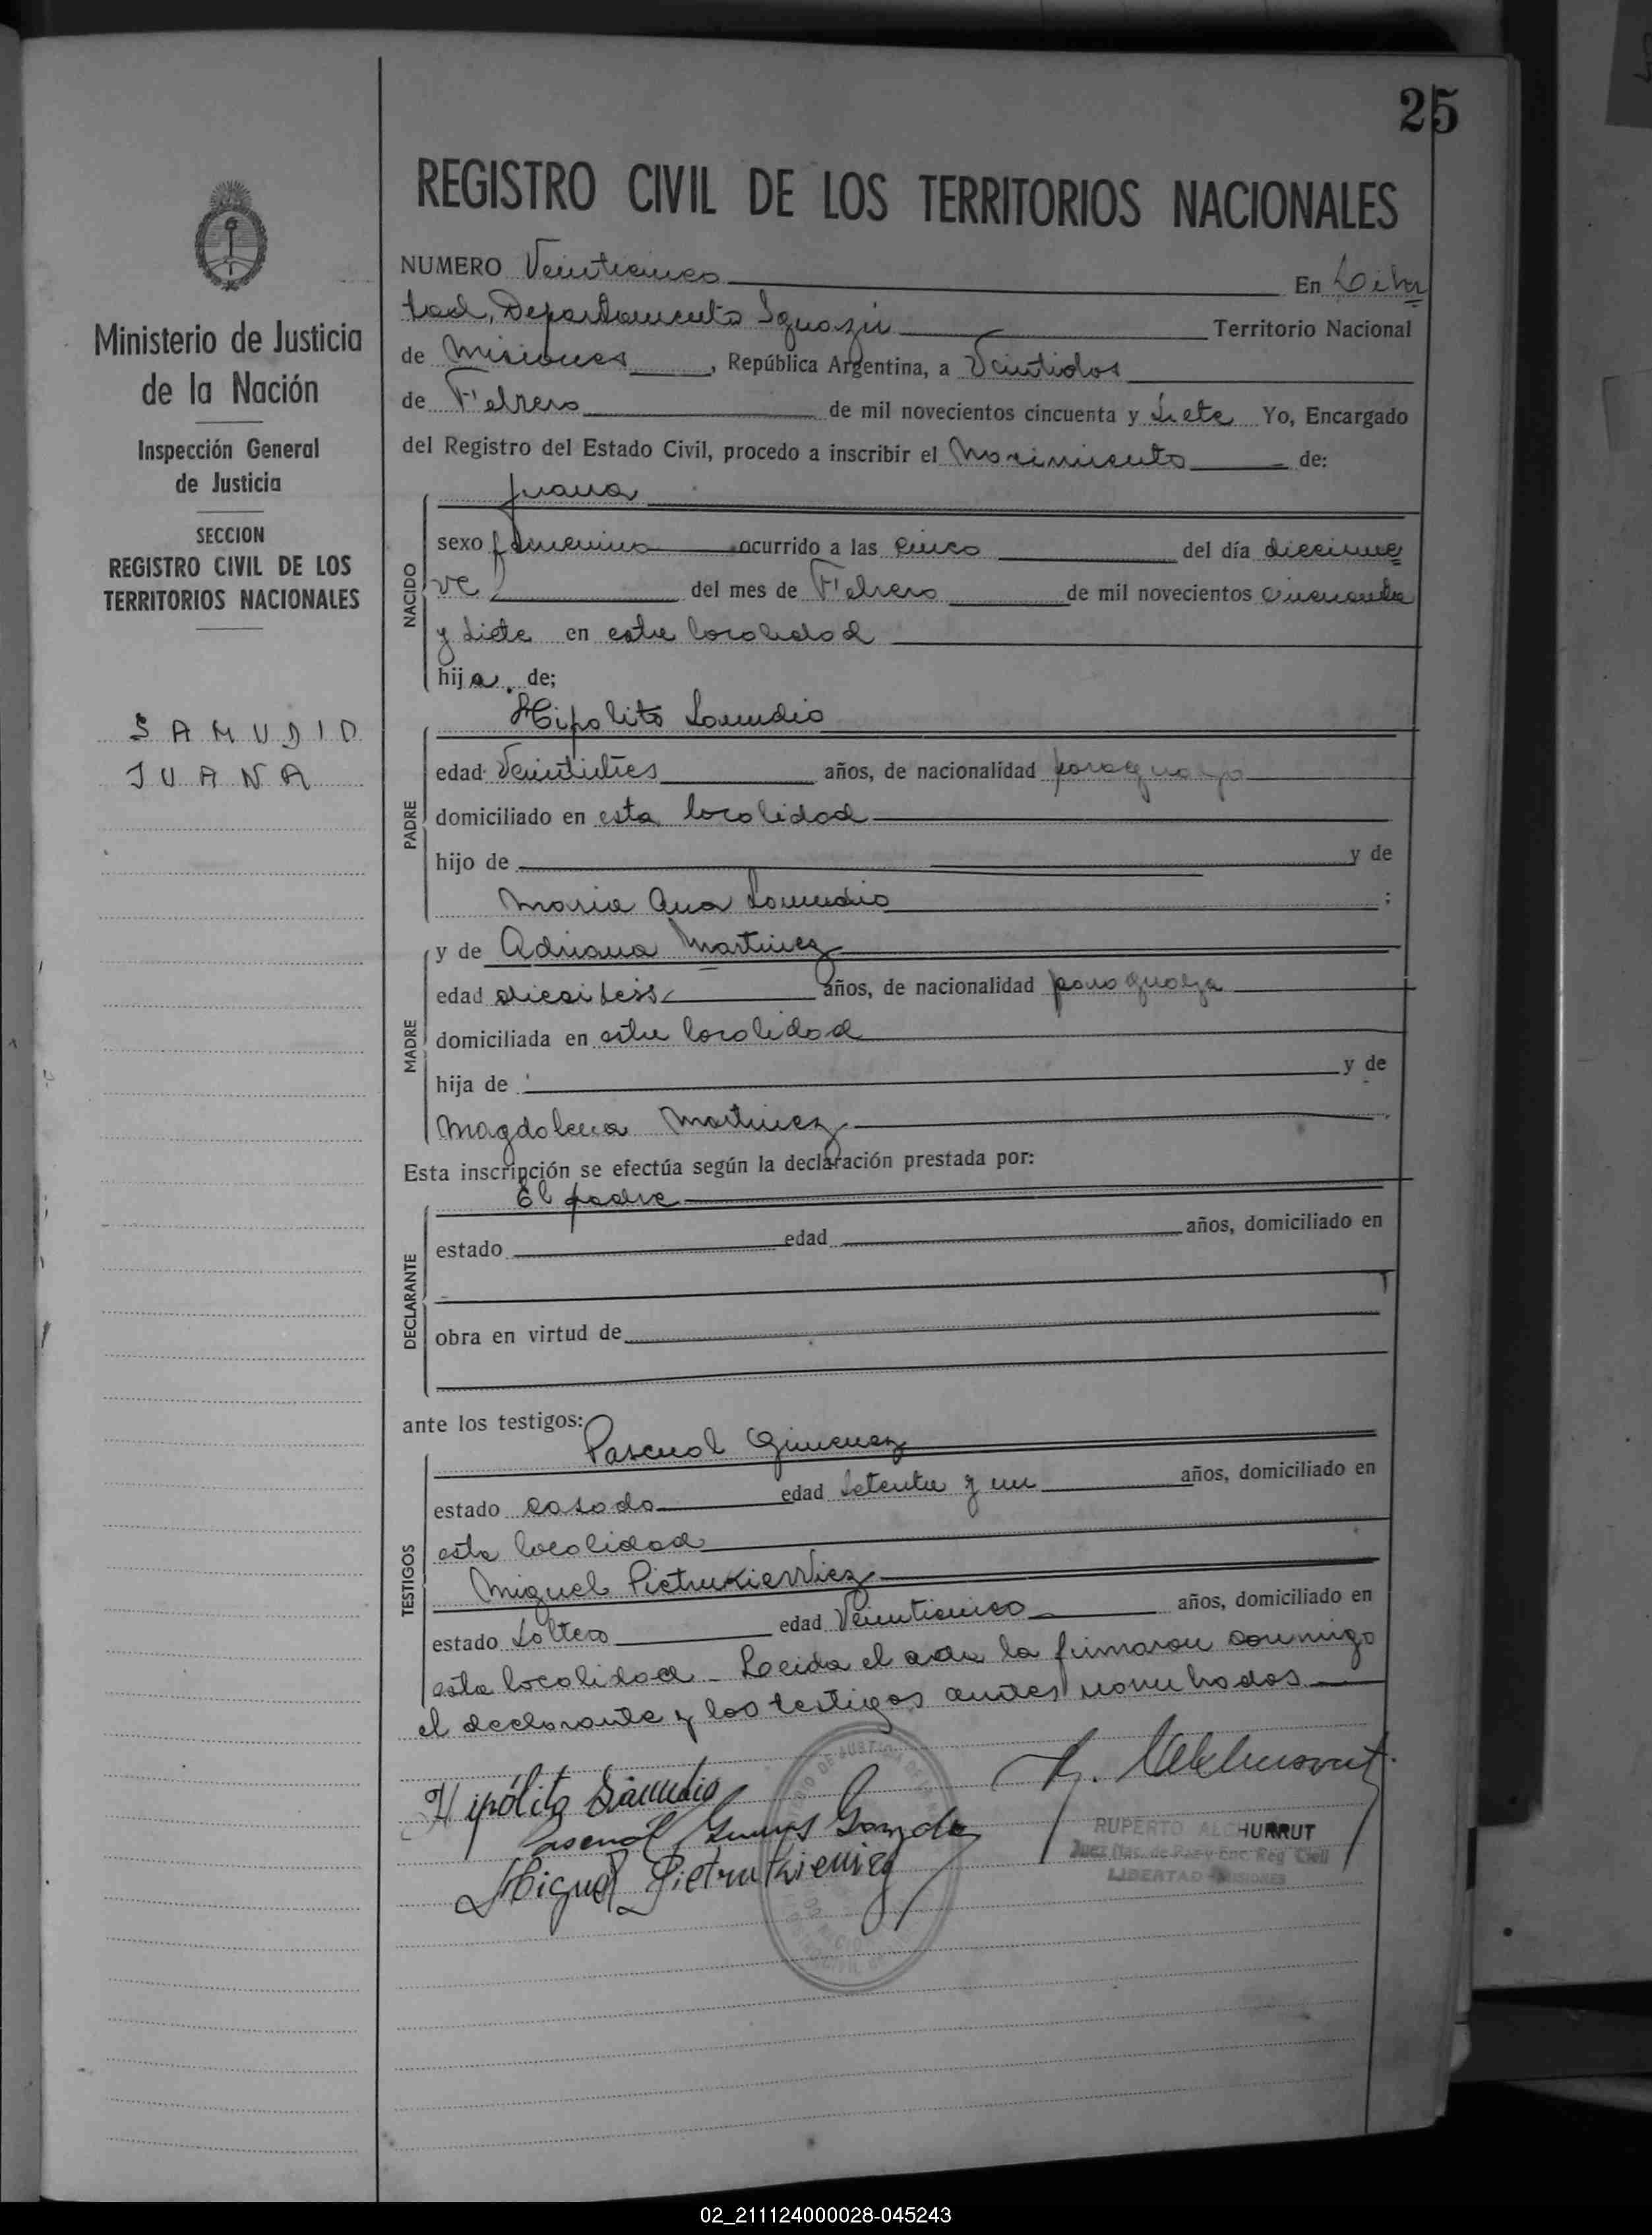 25
REGISTRO CIVIL DE LOS TERRITORIOS NACIONALES
Ministerio de Justicia
de la Nación
Inspección General
de Justicia
SECCION
REGISTRO CIVIL DE LOS
TERRITORIOS NACIONALES
SAMUDIO
JUANA
NUMERO Veinticinco En Liber
tad, Departamento Iguazú Territorio Nacional
de Misiones, República Argentina, a Veintidos
de Febrero de mil novecientos cincuenta y siete Yo, Encargado
del Registro del Estado Civil, procedo a inscribir el Nacimiento de:
NACIDO
Juana
sexo femenino ocurrido a las cinco del día diecinue
ve del mes de Febrero de mil novecientos cincuenta
y siete en esta localidad
hija de;
PADRE
Hipolito Samudio
edad Veintitres años, de nacionalidad paraguaya
domiciliado en esta localidad
hijo de y de
Maria Ana Samudio;
MADRE
y de Adriana Martinez
edad dieciseis años, de nacionalidad paraguaya
domiciliada en esta localidad
hija de y de
Magdalena Martinez
Esta inscripción se efectúa según la declaración prestada por:
DECLARANTE
El padre
estado edad años, domiciliado en
obra en virtud de
ante los testigos:
TESTIGOS
Pascual Gimenez
estado casado edad setenta y un años, domiciliado en
esta localidad
Miguel Pietrukiewicz
estado soltero edad Veinticinco años, domiciliado en
esta localidad - Leida el acta la firmaron conmigo
el declarante y los testigos antes nombrados
Hipólito Samudio
Miguel Pietrukiewicz
RUPERTO ALCHURRUT
Juez Nac. de Paz y Enc. Reg. Civil
LIBERTAD MISIONES
02_211124000028-045243